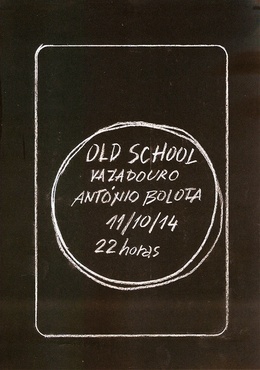 OLD SCHOOL
VAZADOURO
ANTÓNIO BOLOTA
11/10/14
22 horas